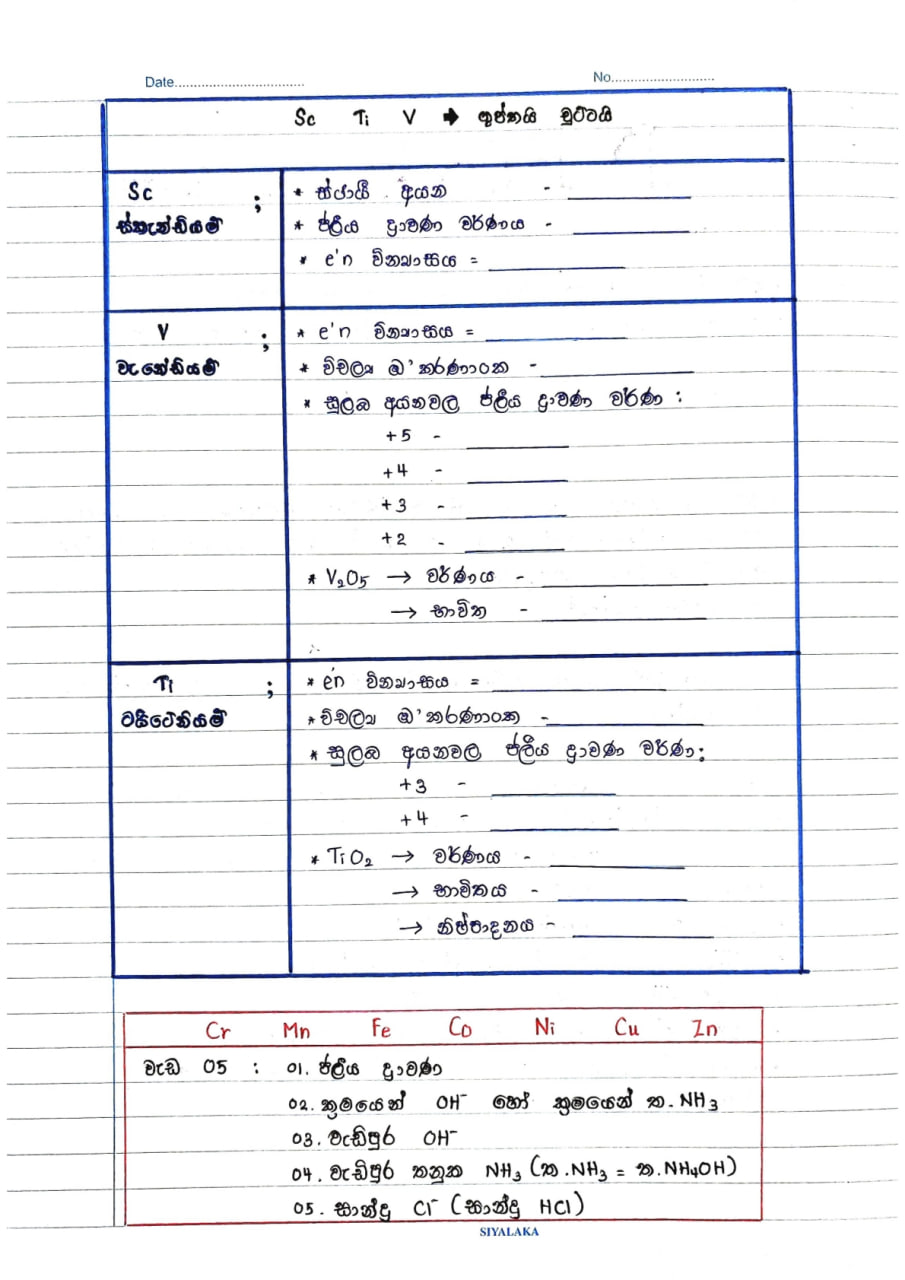 Date................................
No..........................
Sc Ti V → ගුප්තයි චුට්ටයි
Sc ; * ස්ථායී අයන -
ස්කැන්ඩියම් * ජලීය ද්‍රාවණ වර්ණය -
* e'n වින්‍යාසය =
V ; * e'n වින්‍යාසය =
වැනේඩියම් * විචල්‍ය ඔ'කරණාංක -
* සුලබ අයනවල ජලීය ද්‍රාවණ වර්ණ :
+5 -
+4 -
+3 -
+2 -
* V₂O₅ → වර්ණය -
→ භාවිත -
Ti ; * e'n වින්‍යාසය =
ටයිටේනියම් * විචල්‍ය ඔ'කරණාංක -
* සුලබ අයනවල ජලීය ද්‍රාවණ වර්ණ:
+3 -
+4 -
* TiO₂ → වර්ණය -
→ භාවිතය -
→ නිෂ්පාදනය -
Cr Mn Fe Co Ni Cu Zn
වැඩ 05 : 01. ජලීය ද්‍රාවණ
02. ක්‍රමයෙන් OH⁻ හෝ ක්‍රමයෙන් ත.NH₃
03. වැඩිපුර OH⁻
04. වැඩිපුර තනුක NH₃ (ත.NH₃ = ත.NH₄OH)
05. සාන්ද්‍ර Cl⁻ (සාන්ද්‍ර HCl)
SIYALAKA